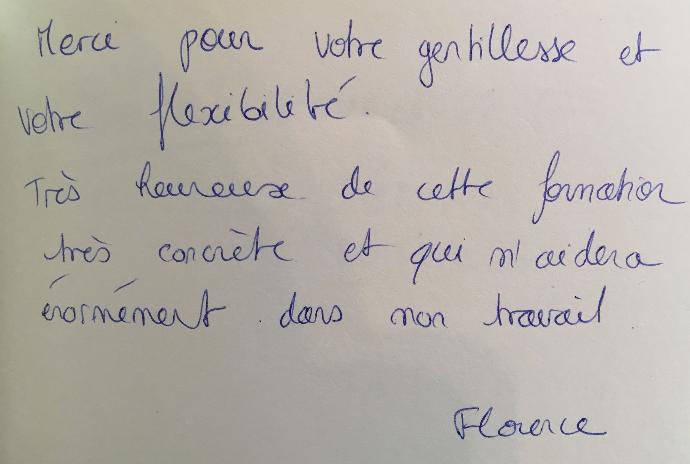 Merci pour votre gentillesse et
votre flexibilité.
Très heureuse de cette formation
très concrète et qui m'aidera
énormément dans mon travail
Florence